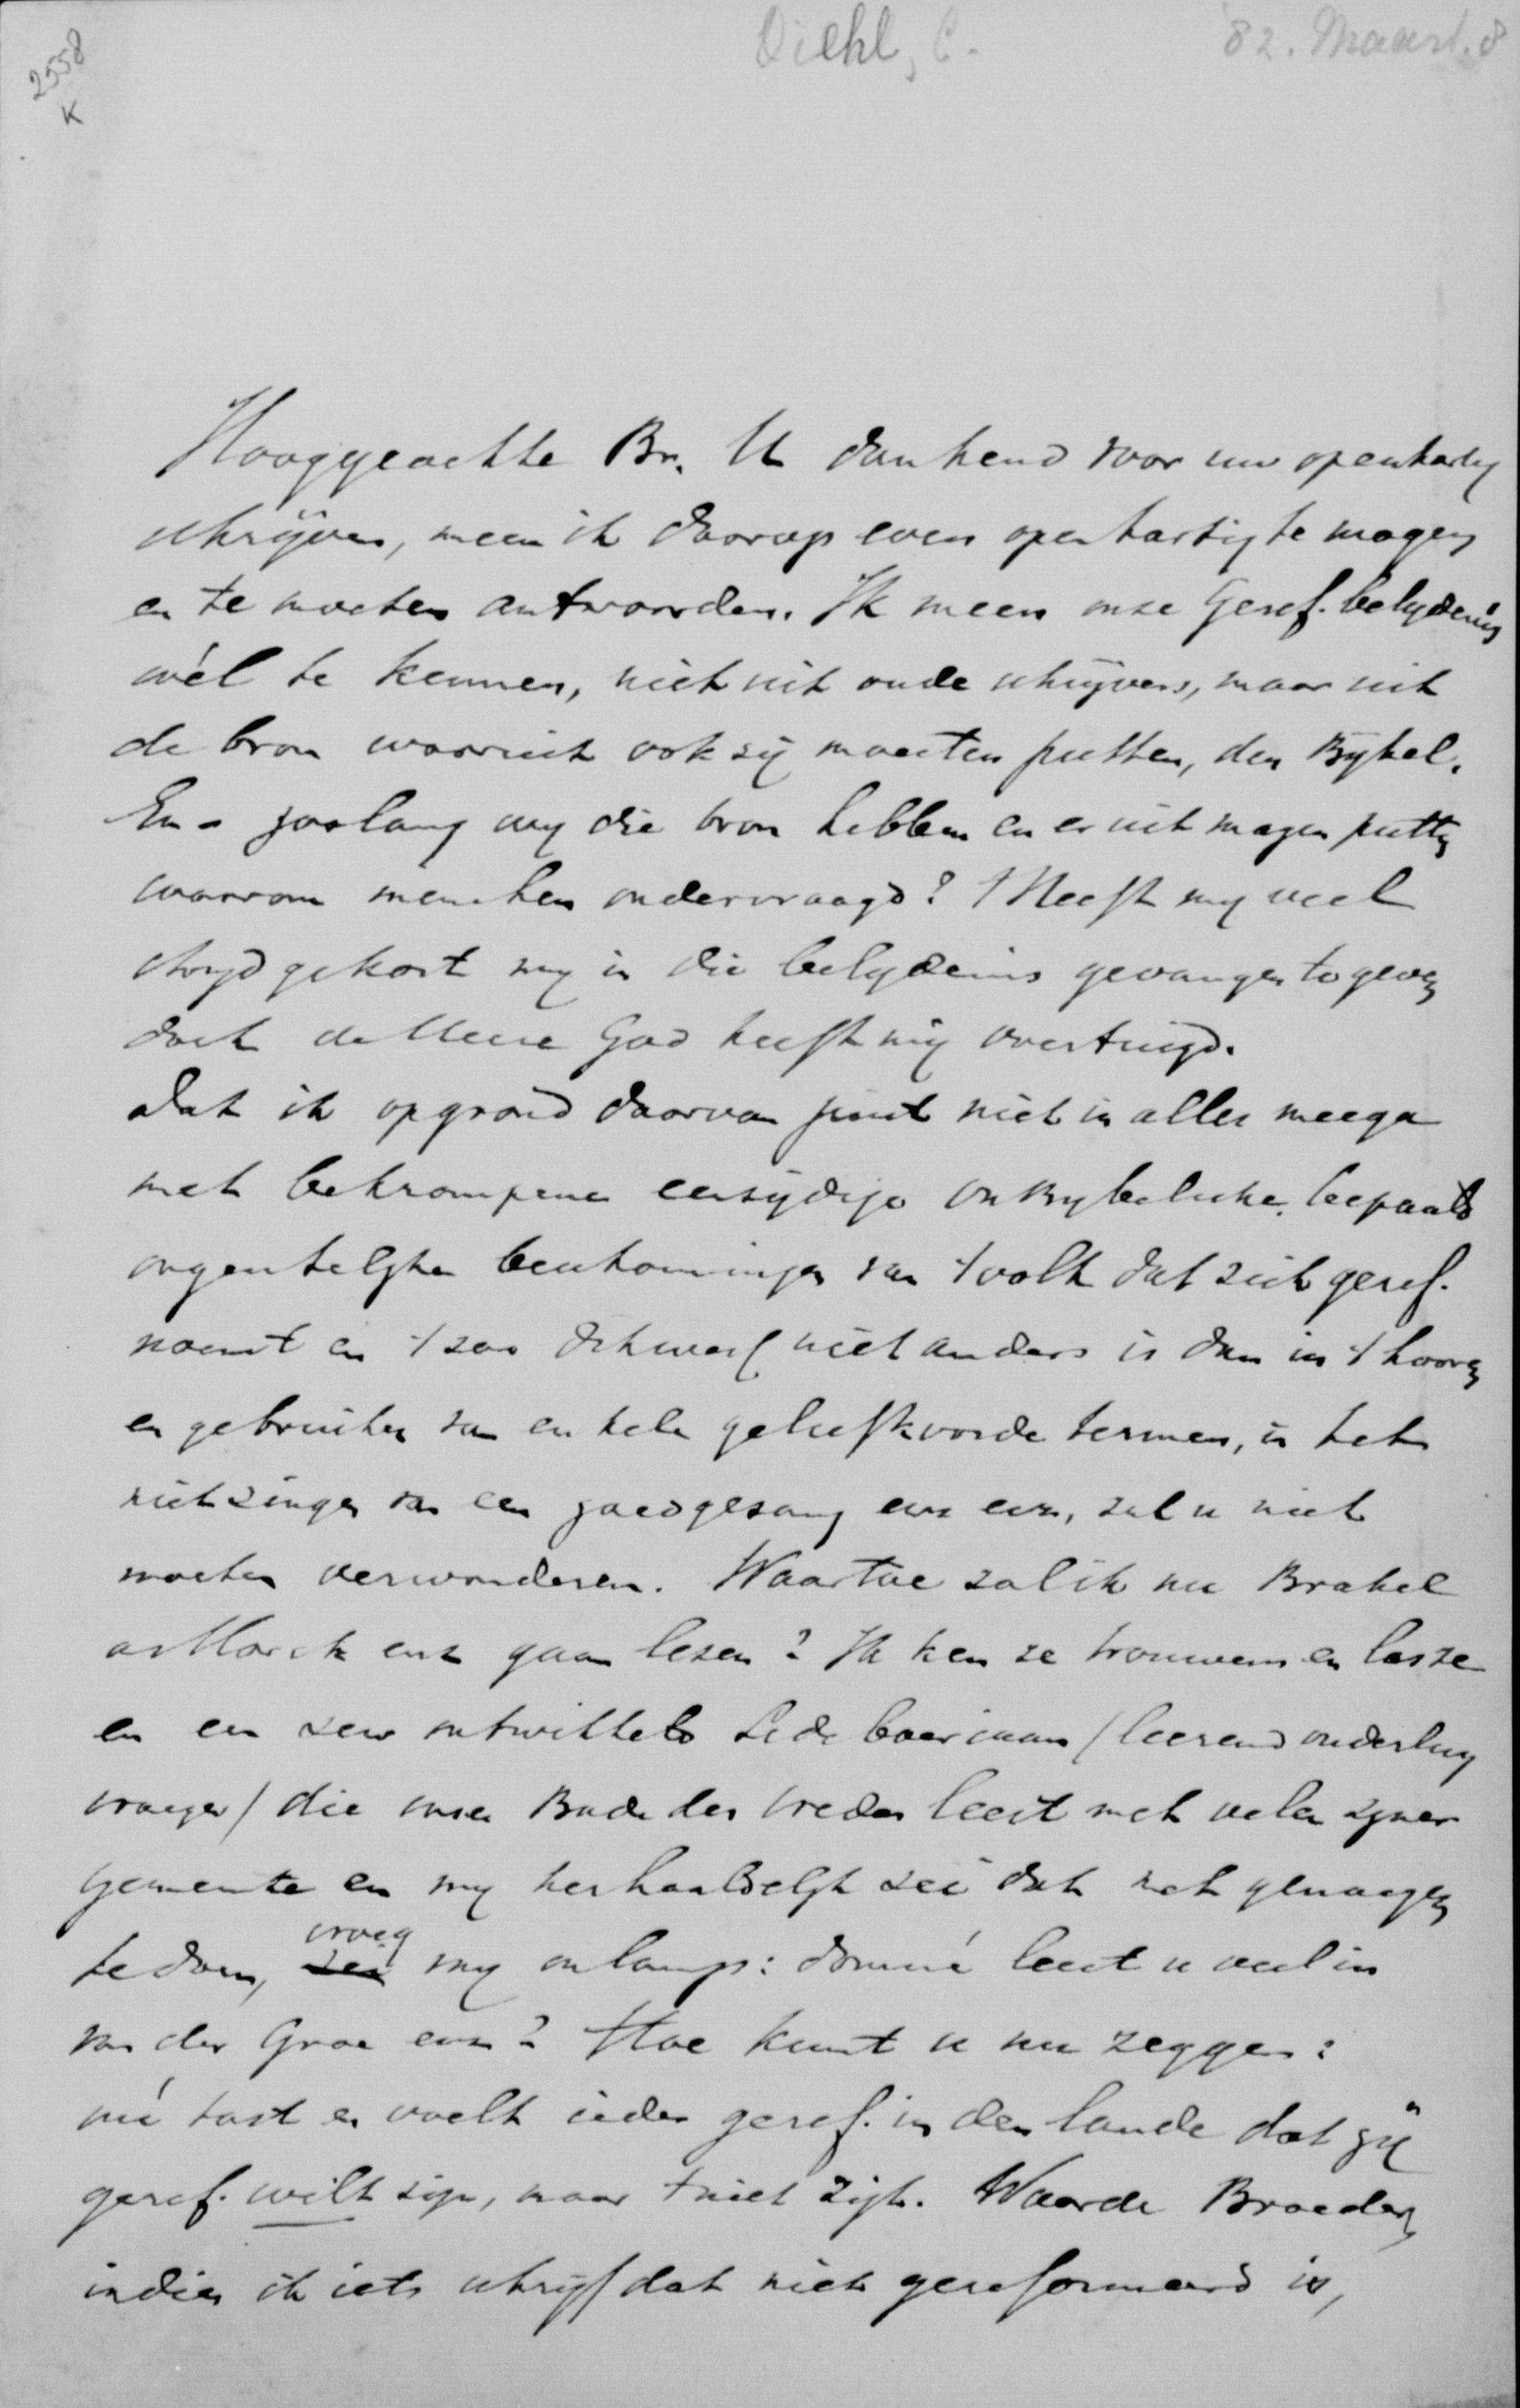 2558
K
Diehl, C.
82. Maart. 8
Hooggeachte Br. U dankend voor uw openhartig
schrijven, meen ik daarop even openhartig te mogen
en te moeten antwoorden. Ik meen onze Geref. belydenis
wèl te kennen, niet uit oude schrijvers, maar uit
de bron waaruit ook zij moesten putten, den Bybel.
En - zoolang wy die bron hebben en er uit mogen putten
waarom menschen ondervraagd? 't Heeft my veel
stryd gekost my in die belydenis gevangen te geven
doch de Heere God heeft mij overtuigd.
Dat ik op grond daarvan juist niet in alles meega
met bekrompene eenzydige onbybelsche, bepaald
ongeestelyke beschouwingen van 't volk dat zich geref.
noemt en 't zoo dikwerf niet anders is dan in 't hooren
en gebruiken van enkele geliefkoosde termen, in het
niet zingen van een goed gezang enz enz, zal u niet
moeten verwonderen. Waartoe zal ik nu Brakel
à Marck enz gaan lezen? Ik ken ze trouwens en las ze
en een zeer ontwikkeld Ledeboeriaan (leerend ouderling
vroeger) die onzen Bode des vredes leest met velen zyner
gemeente en my herhaaldelyk zei dat met genoegen
te doen, zei vroeg my onlangs: dominé leest u veel in
van der Groe enz? Hoe kunt u nu zeggen:
nú tast en voelt ieder geref. in den lande dat gij
geref. wilt zijn, maar 't niet zijt. Waarde Broeder,
indien ik iets schrijf dat niet gereformeerd is,